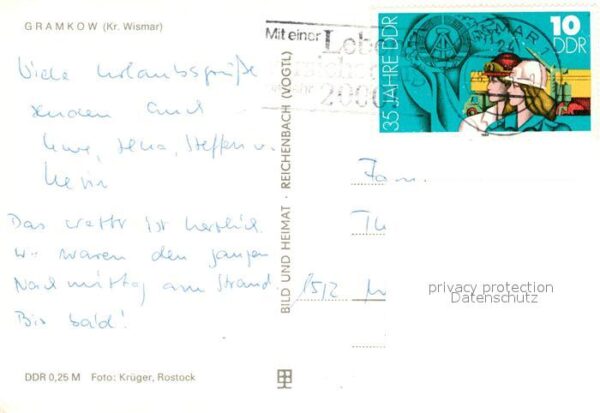 GRAMKOW (Kr. Wismar)
Viele Urlaubsgrüße
senden Euch
Uwe, Jena, Steffen u.
Kevin
Das Wetter ist herrlich.
Wir waren den ganzen
Nachmittag am Strand.
Bis bald!
DDR 0,25 M Foto: Krüger, Rostock
BILD UND HEIMAT · REICHENBACH (VOGTL)
Mit einer
2000
35 JAHRE DDR
10
DDR
Fam.
Th
privacy protection
Datenschutz